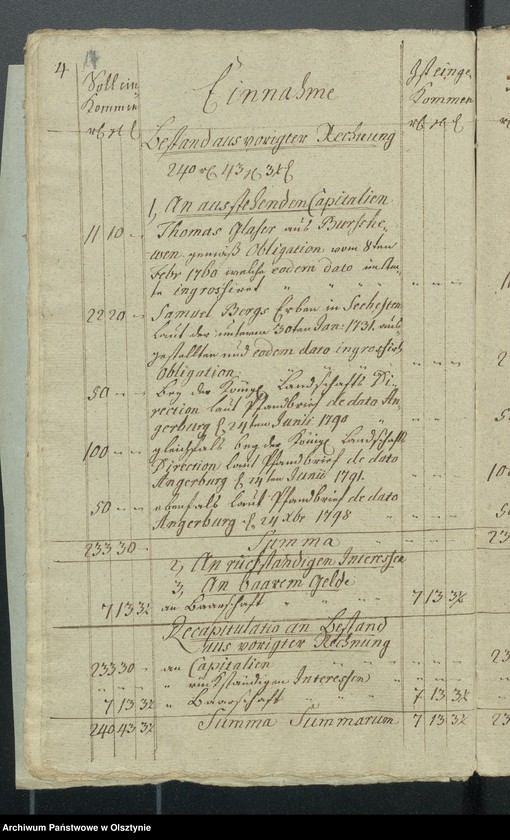 4
Soll ein
kommen
Einnahme
Ist einge
kommen
Bestand aus voriger Rechnung
240 rh 43 3¾
1, An ausstehenden Capitalien
11 10 - Thomas Glaser aus Bursche,
wen gemäß Obligation vom 8ten
Febr 1760 welche eodem dato im Am,
te ingrossiret " " " " " "
22 20 - Samuel Bergs Erben in Seehesten
laut der unterm 30ten Jan: 1731. aus
gestellten und eodem dato ingrossirten
Obligation " " " "
50 - - bey der Königl Landschafts Di,
rection laut Pfandbrief de dato An,
gerburg d 24ten Junii 1790 " " "
100 - - gleichfals bey der Königl Landschafts
Direction laut Pfandbrief de dato
Angerburg d 14ten Junii 1791. " " "
50 - - ebenfals laut Pfandbrief de dato
Angerburg d. 24 Xbr 1798 " " "
233 30 - Summa
2, An rückständigen Interessen
3, An baarem Gelde
7 13 3¾ an Baarschaft " " " 7 13 3¾
Recapitulatio an Bestand
aus voriger Rechnung
233 30 - an Capitalien " " "
" " " " rückständigen Interessen " " "
7 13 3¾ " Baarschaft " " 7 13 3¾
240 43 3¾ Summa Summarum 7 13 3¾
Archiwum Państwowe w Olsztynie